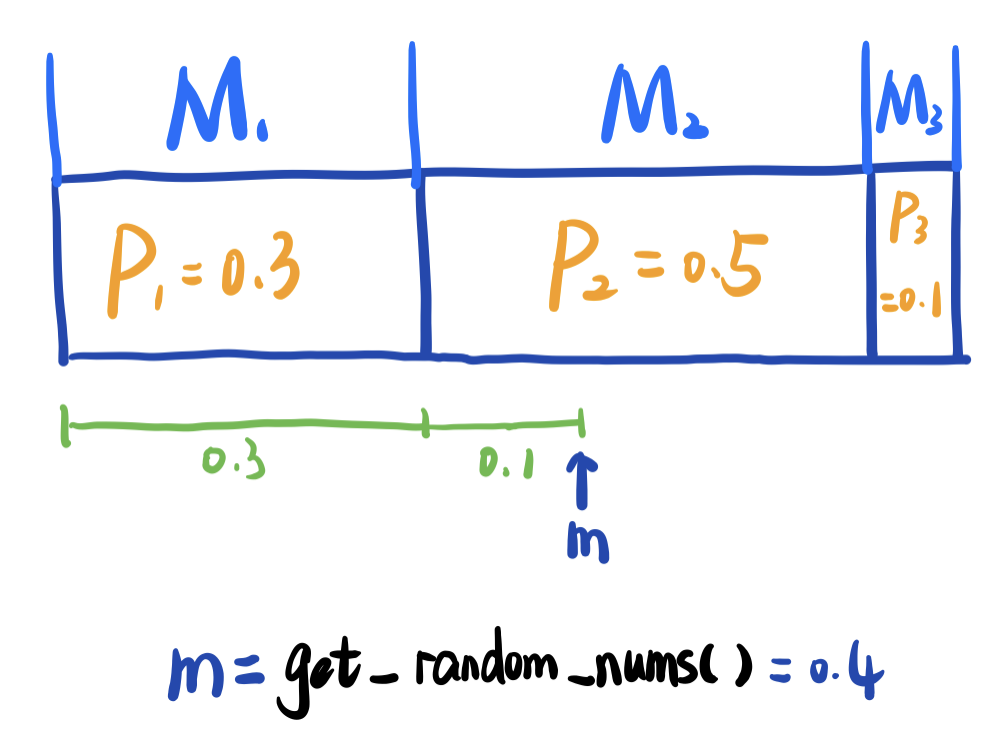 M₁ M₂ M₃
P₁ = 0.3 P₂ = 0.5 P₃ = 0.1
0.3 0.1
m
m = get_random_nums() = 0.4